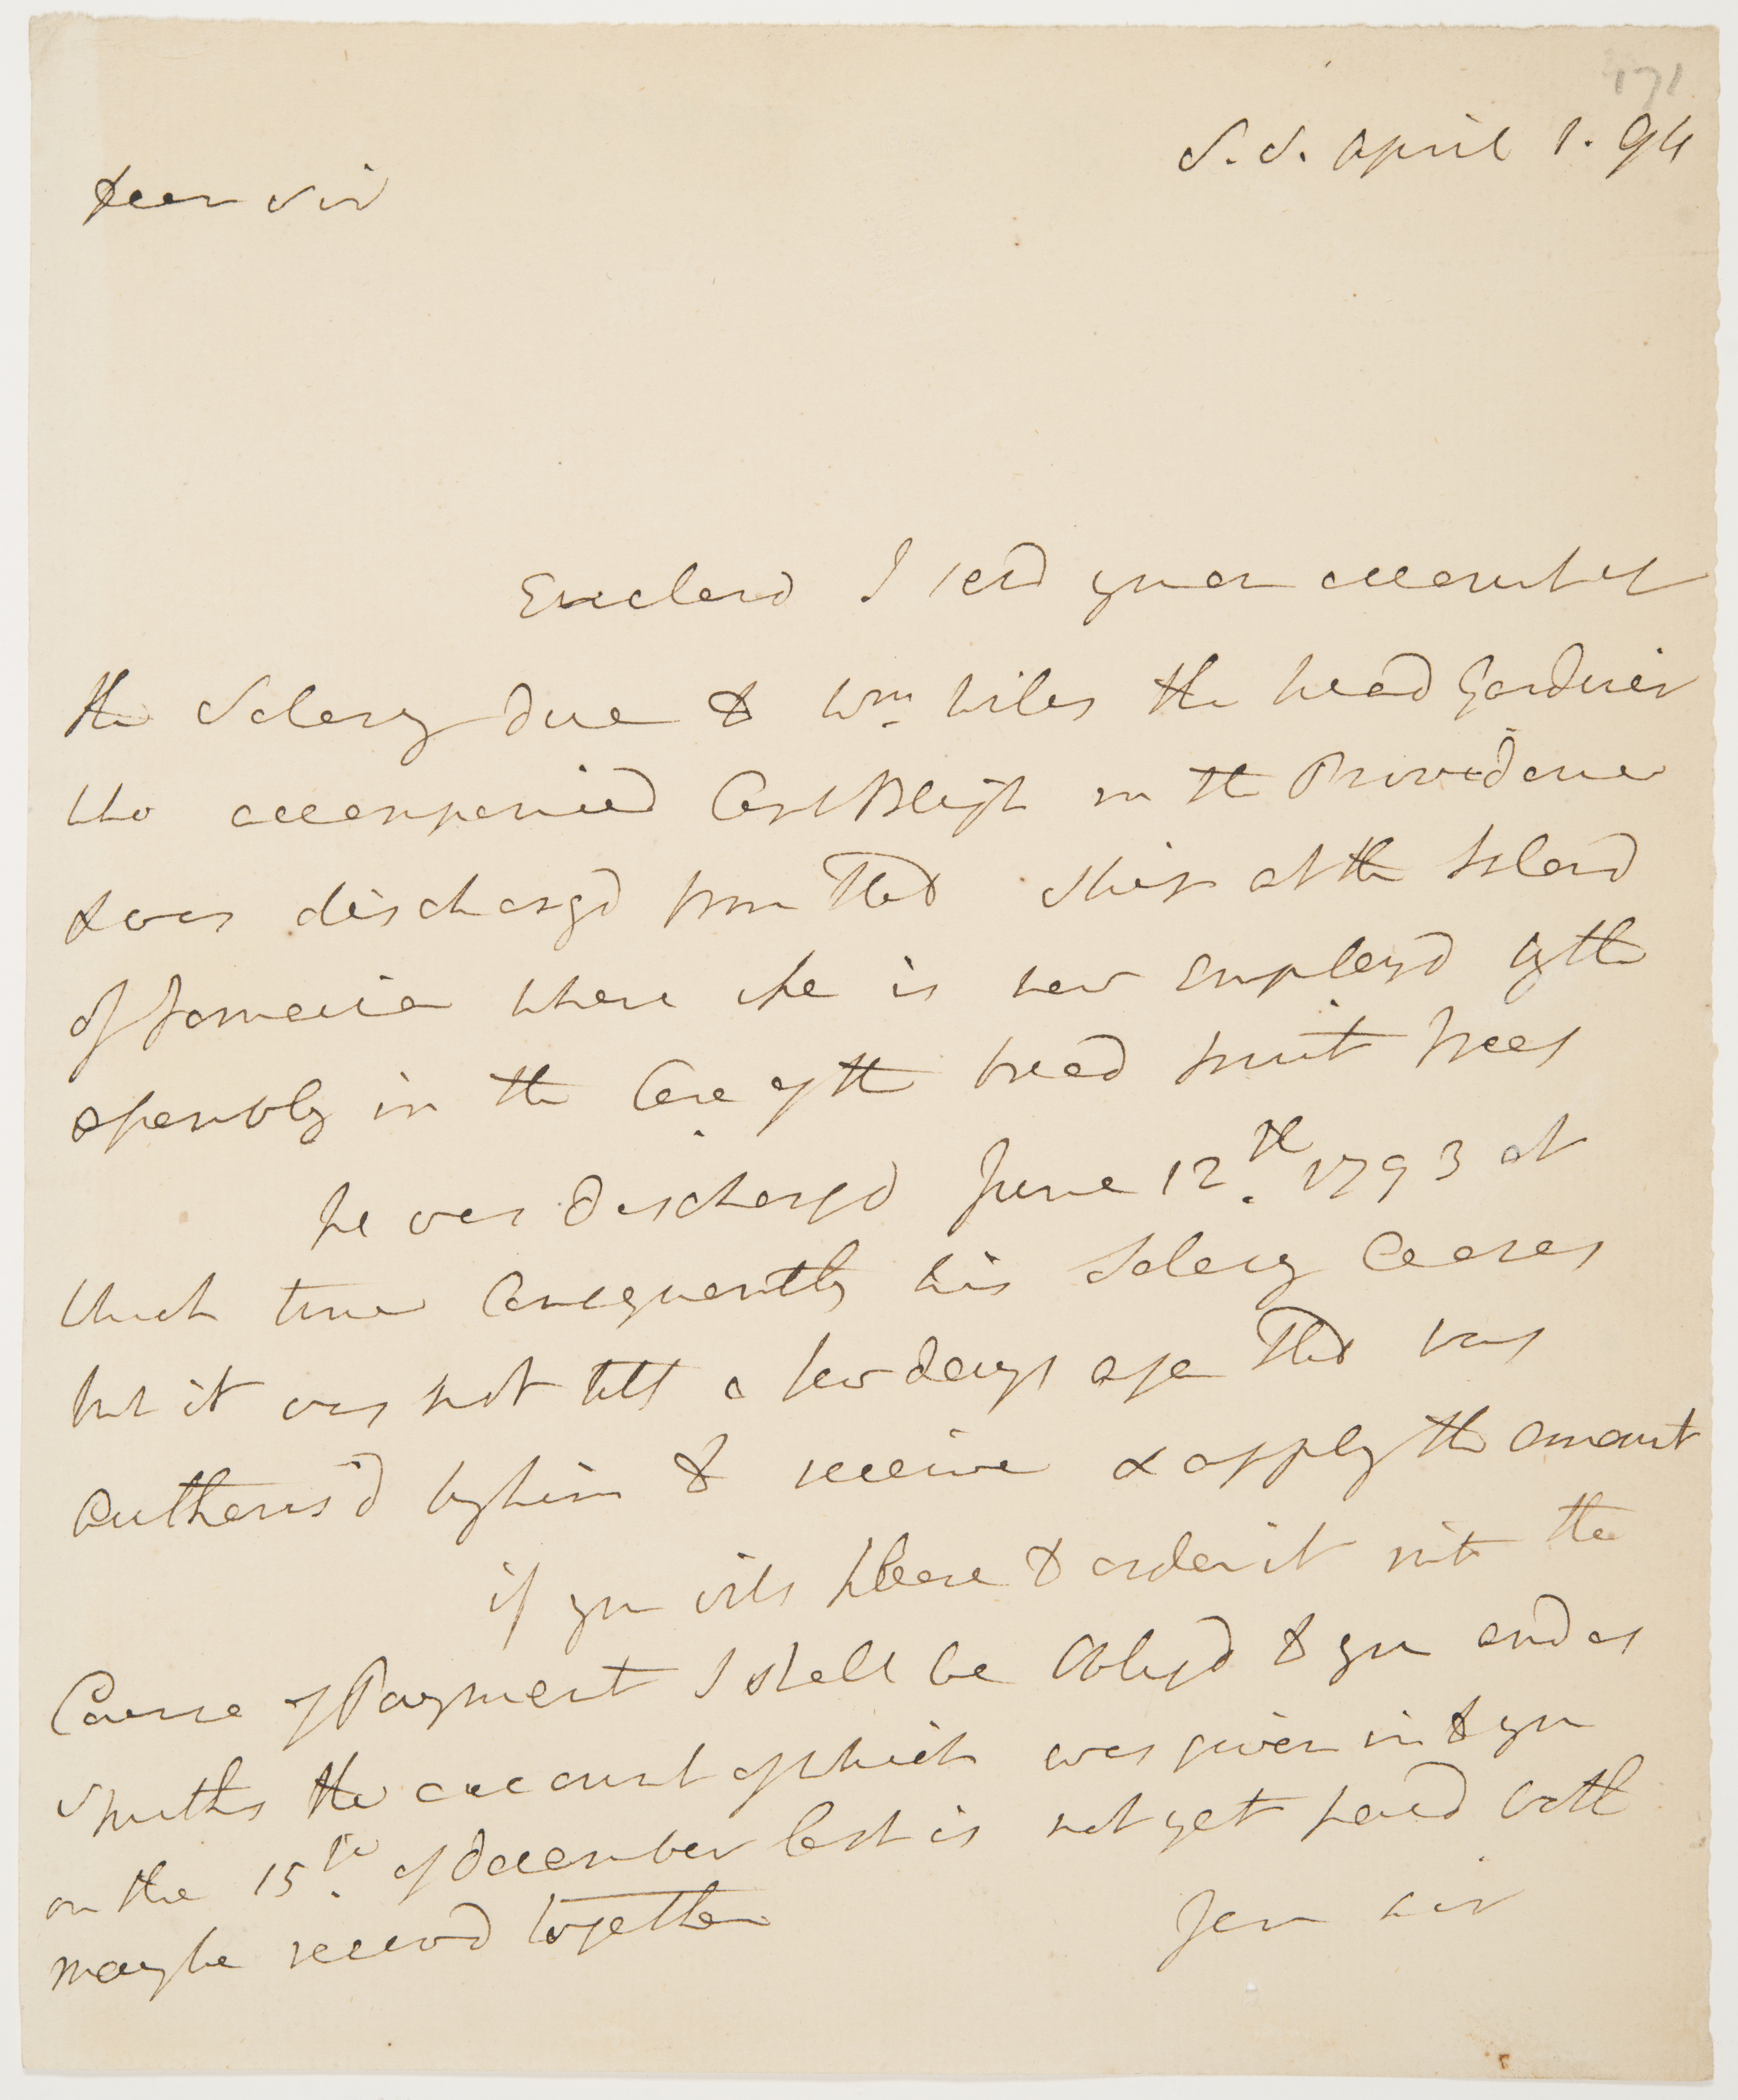 171
S.S. April 1. 94
Dear Sir
Enclosd I send you an account of
the Salary due to Wm. Wiles the head Gardiner
Who accompanied Capt Bligh in the Providence
& was dischargd from that Ship at the Island
of Jamaica where he is now Employd by the
assembly in the Care of the bread fruit trees
he was dischargd June 12th. 1793 at
Which time Consequently his Salary Ceases
but it was not till a few days ago that I was
Authoris'd by him to receive & apply the amount
if you will please to order it into the
Course of Payment I shall be Obligd to you and as
Smiths the account of which was given in to you
on the 15th. of december last is not yet paid both
may be receivd together
I am Sir